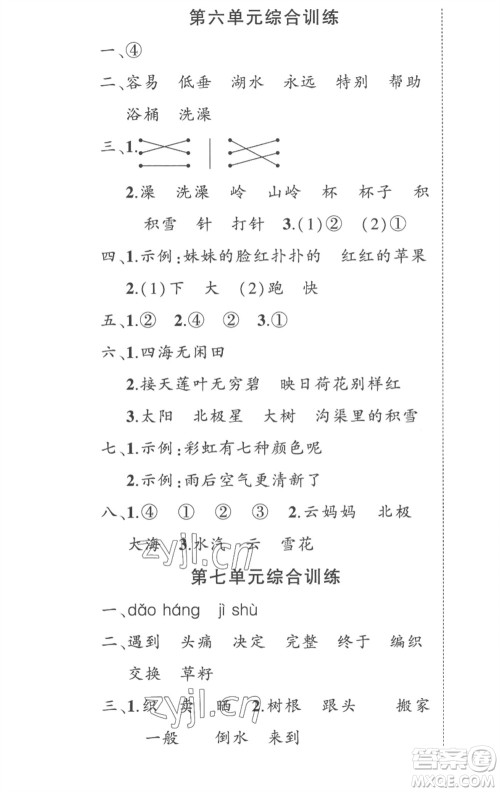 第六单元综合训练
一、④
二、容易 低垂 湖水 永远 特别 帮助
浴桶 洗澡
三、1.
2.澡 洗澡 岭 山岭 杯 杯子 积
积雪 针 打针 3.(1)② (2)①
四、1.示例:妹妹的脸红扑扑的 红红的苹果
2.(1)下 大 (2)跑 快
五、1.② 2.④ ② 3.①
六、1.四海无闲田
2.接天莲叶无穷碧 映日荷花别样红
3.太阳 北极星 大树 沟渠里的积雪
七、1.示例:彩虹有七种颜色呢
2.示例:雨后空气更清新了
八、1.④ ① ② ③ 2.云妈妈 北极
大海 3.水汽 云 雪花
zyjl.cn
第七单元综合训练
一、dǎo háng jì shù
二、遇到 头痛 决定 完整 终于 编织
交换 草籽
三、1.织 卖 晒 2.树根 跟头 搬家
一般 倒水 来到
zyjl.cn
答案圈
MXQE.COM